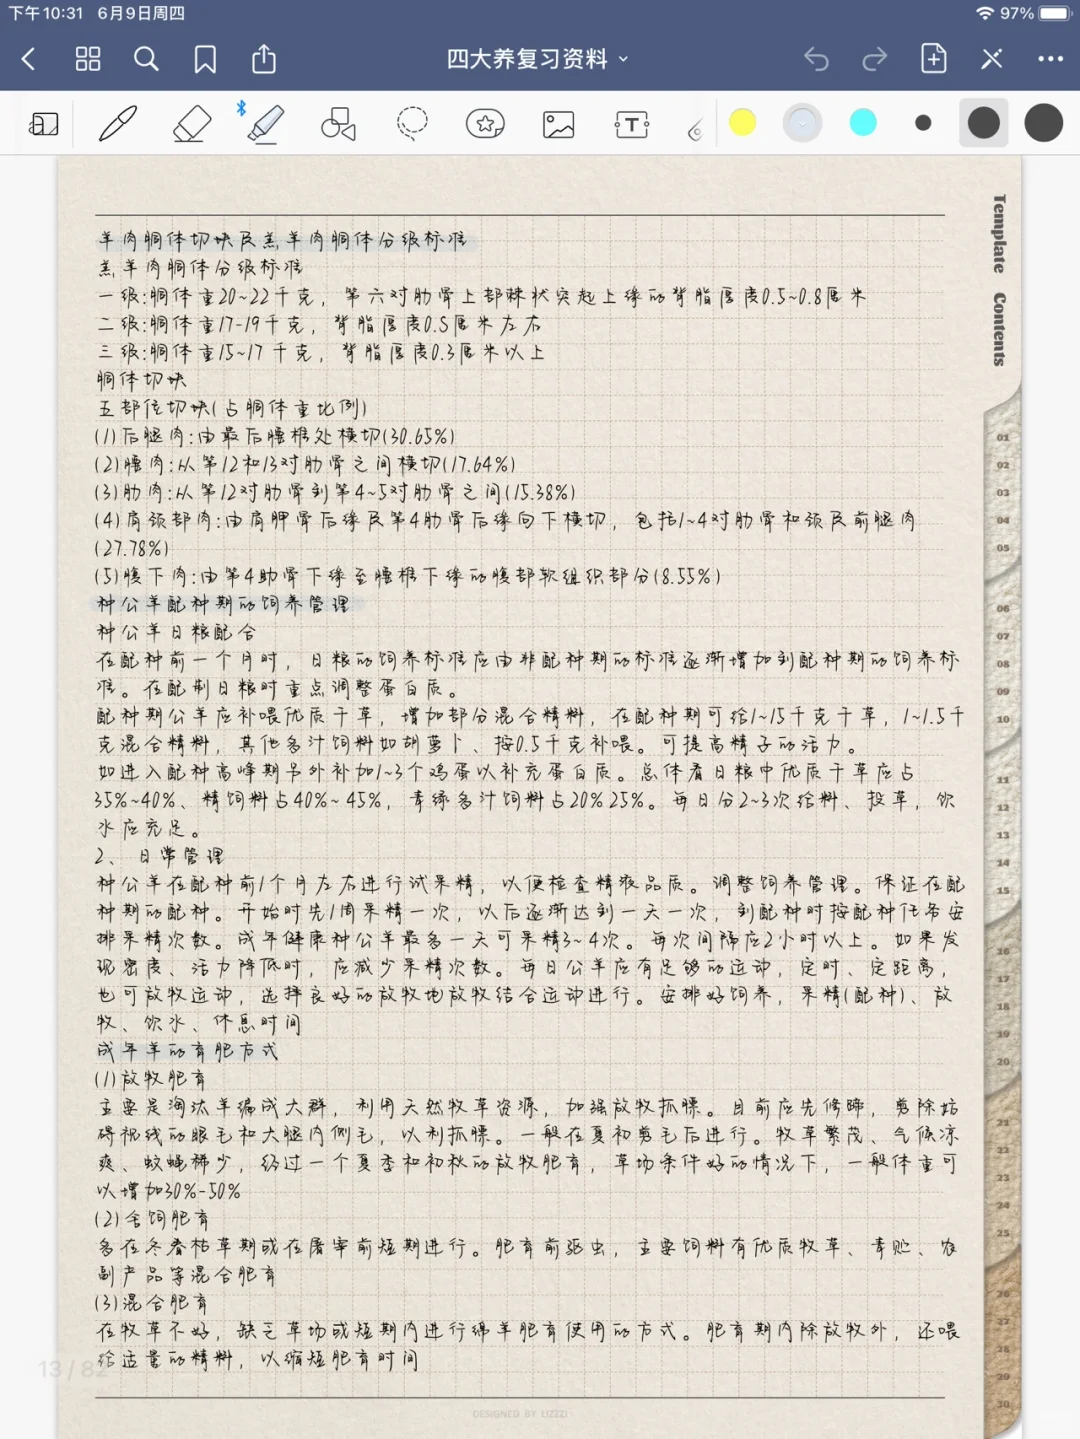 下午10:31 6月9日周四
97%
四大养复习资料
Template Contents
羊肉胴体切块及羔羊肉胴体分级标准
羔羊肉胴体分级标准
一级:胴体重20~22千克，第六对肋骨上部棘状突起上缘的背脂厚度0.5~0.8厘米
二级:胴体重17-19千克，背脂厚度0.5厘米左右
三级:胴体重15~17千克，背脂厚度0.3厘米以上
胴体切块
五部位切块(占胴体重比例)
(1)后腿肉:由最后腰椎处横切(30.65%)
(2)腰肉:从第12和13对肋骨之间横切(17.64%)
(3)肋肉:从第12对肋骨到第4~5对肋骨之间(15.38%)
(4)肩颈部肉:由肩胛骨后缘及第4肋骨后缘向下横切，包括1~4对肋骨和颈及前腿肉
(27.78%)
(5)腹下肉:由第4助骨下缘至腰椎下缘的腹部软组织部分(8.55%)
种公羊配种期的饲养管理
种公羊日粮配合
在配种前一个月时，日粮的饲养标准应由非配种期的标准逐渐增加到配种期的饲养标
准。在配制日粮时重点调整蛋白质。
配种期公羊应补喂优质干草，增加部分混合精料，在配种期可给1~15千克干草，1~1.5千
克混合精料，其他多汁饲料如胡萝卜、按0.5千克补喂。可提高精子的活力。
如进入配种高峰期另外补加1~3个鸡蛋以补充蛋白质。总体看日粮中优质干草应占
35%~40%、精饲料占40%~45%，青绿多汁饲料占20%25%。每日分2~3次给料、投草，饮
水应充足。
2、日常管理
种公羊在配种前1个月左右进行试采精，以便检查精液品质。调整饲养管理。保证在配
种期的配种。开始时先1周采精一次，以后逐渐达到一天一次，到配种时按配种任务安
排采精次数。成年健康种公羊最多一天可采精3~4次。每次间隔应2小时以上。如果发
现密度、活力降低时，应减少采精次数。每日公羊应有足够的运动，定时、定距离，
也可放牧运动，选择良好的放牧地放牧结合运动进行。安排好饲养，采精(配种)、放
牧、饮水、休息时间
成年羊的育肥方式
(1)放牧肥育
主要是淘汰羊编成大群，利用天然牧草资源，加强放牧抓膘。目前应先修蹄，剪除妨
碍视线的眼毛和大腿内侧毛，以利抓膘。一般在夏初剪毛后进行。牧草繁茂、气候凉
爽、蚊蝇稀少，经过一个夏季和初秋的放牧肥育，草场条件好的情况下，一般体重可
以增加30%-50%
(2)舍饲肥育
多在冬春枯草期或在屠宰前短期进行。肥育前驱虫，主要饲料有优质牧草、青贮、农
副产品等混合肥育
(3)混合肥育
在牧草不好，缺乏草场或短期内进行绵羊肥育使用的方式。肥育期内除放牧外，还喂
给适量的精料，以缩短肥育时间
13/82
DESIGNED BY LIZZZI
01
02
03
04
05
06
07
08
09
10
11
12
13
14
15
16
17
18
19
20
21
22
23
24
25
26
27
28
29
30